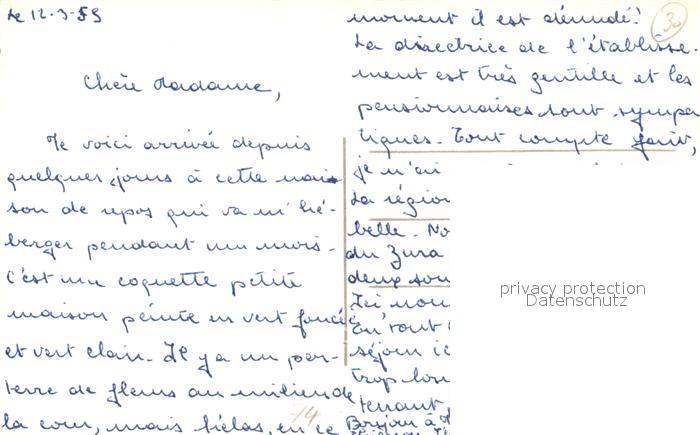 Le 12-3-59
Chère Madame,
Me voici arrivée depuis
quelques jours à cette mai-
son de repos qui va m'hé-
berger pendant un mois.
C'est une coquette petite
maison peinte en vert foncé
et vert clair. Il y a un par-
terre de fleurs au milieu de
la cour, mais hélas, en ce
14
moment il est dénudé!
30
La directrice de l'établisse-
ment est très gentille et les
pensionnaires sont sympa
tiques. Tout compte fait,
je n'ai
La région
belle. No
du Jura
deux sou
Ici, nou
En tout
séjour ic
trop lon
tenant
Bonjour à
privacy protection
Datenschutz